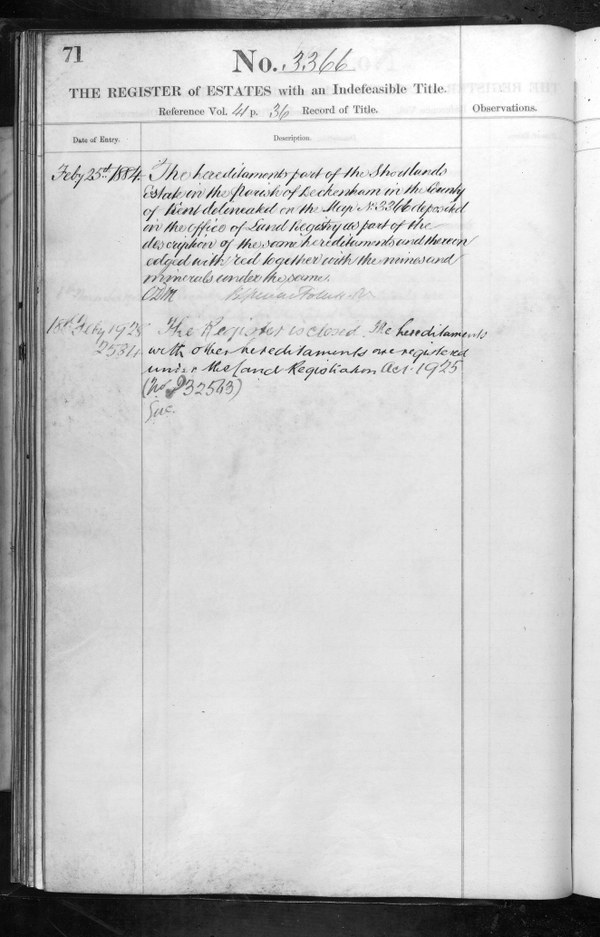 71
No. 3366
THE REGISTER of ESTATES with an Indefeasible Title.
Reference Vol. 41 p. 36 Record of Title.
Observations.
Date of Entry.
Description.
Feby 25th 1884.
The hereditaments part of the Shortlands
Estate in the Parish of Beckenham in the County
of Kent delineated on the Map No. 3366 deposited
in the Office of Land Registry as part of the
description of the same hereditaments and thereon
edged with red together with the mines and
minerals under the same.
18th Feby 1928
The Register is closed. The hereditaments
with other hereditaments are registered
under the Land Registration Act 1925
(No. P 32563)